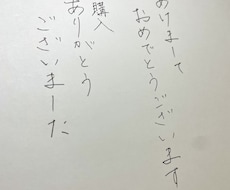 あけまして
おめでとうございます
購入
ありがとう
ございました